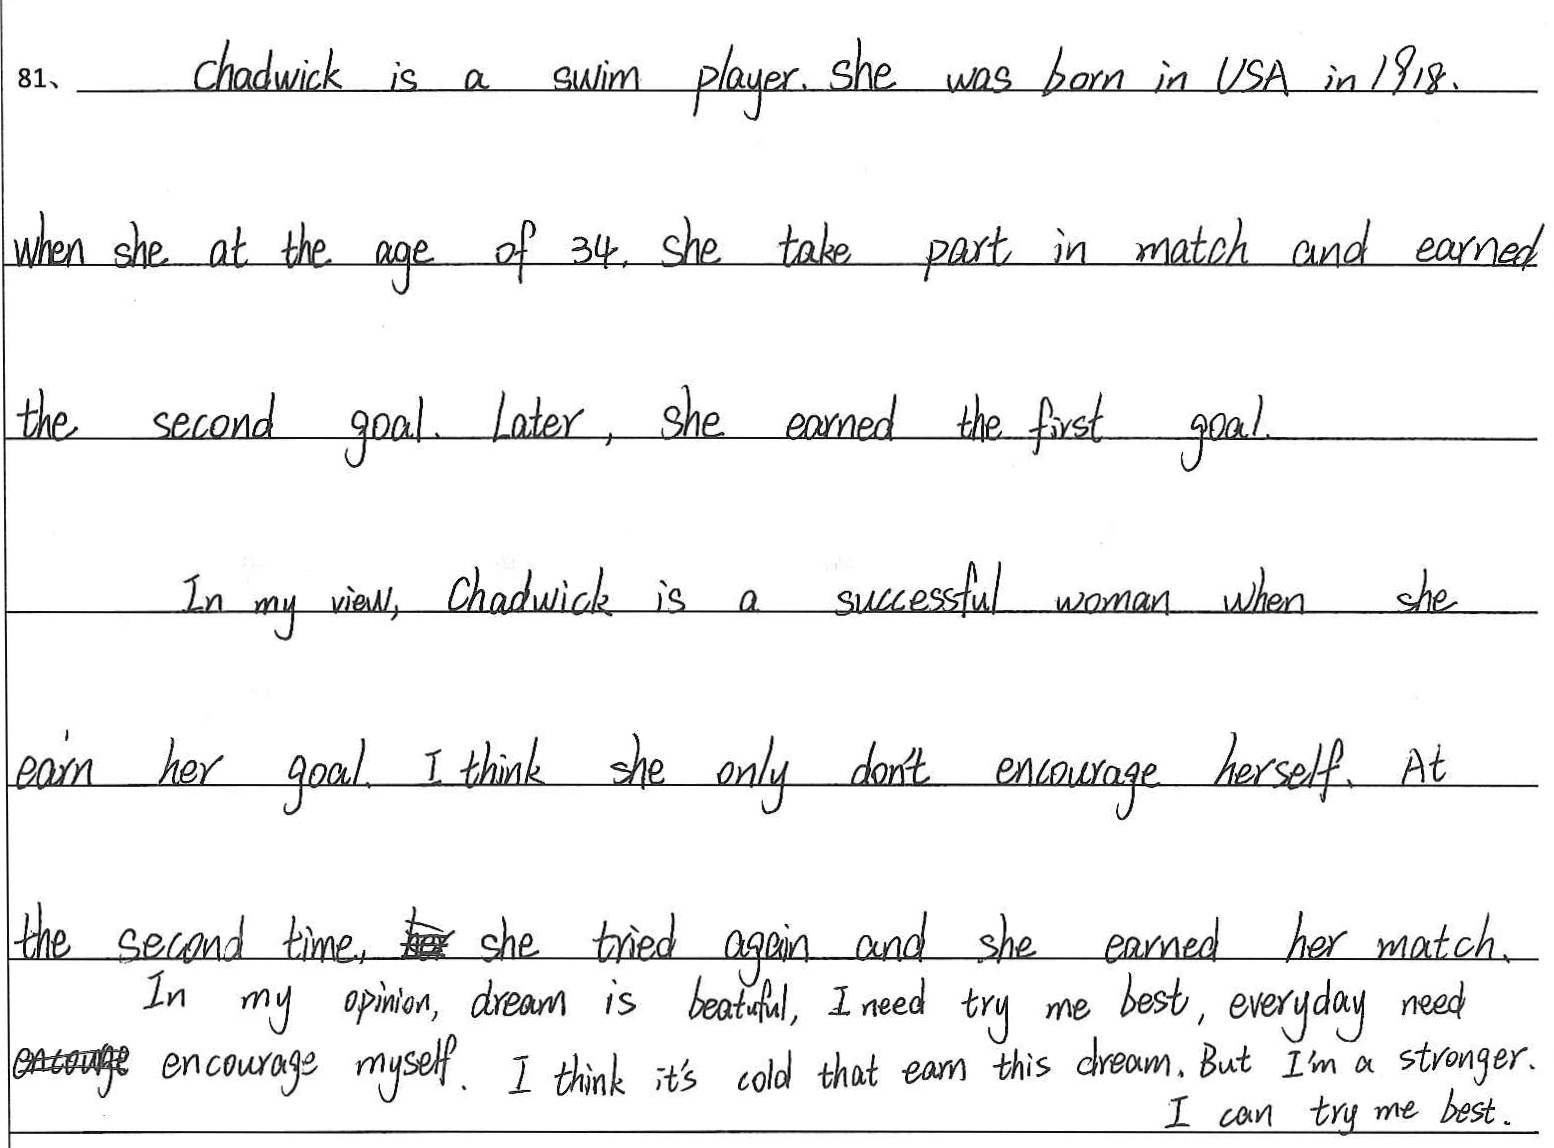 81、 Chadwick is a swim player. She was born in USA in 1918.
When she at the age of 34. She take part in match and earned
the second goal. Later, she earned the first goal.
In my view, Chadwick is a successful woman when she
earn her goal. I think she only don't encourage herself. At
the second time, she tried again and she earned her match.
In my opinion, dream is beatuful, I need try me best, everyday need
encourage myself. I think it's cold that earn this dream. But I'm a stronger.
I can try me best.